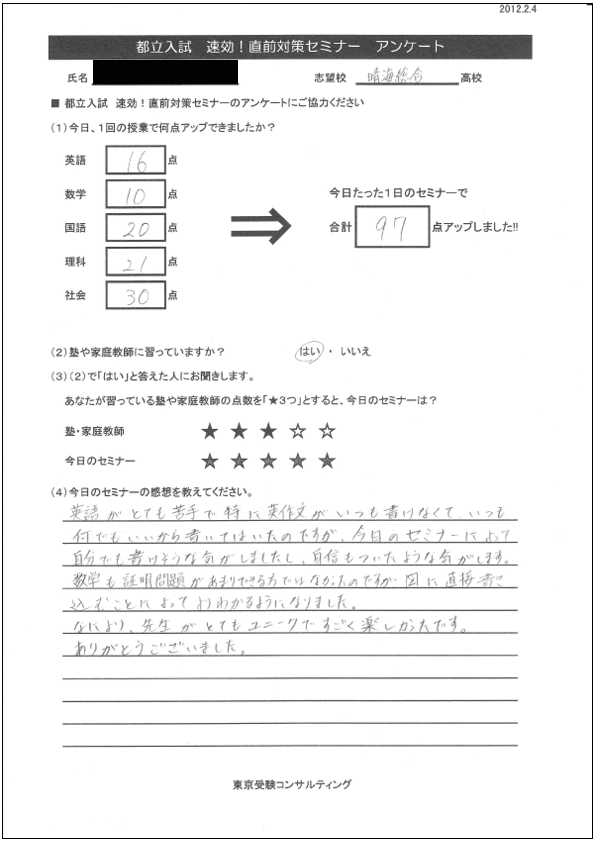 2012.2.4
都立入試　速効！直前対策セミナー　アンケート
氏名　志望校　晴海総合　高校
■ 都立入試　速効！直前対策セミナーのアンケートにご協力ください
（1）今日、1回の授業で何点アップできましたか？
英語　16　点
数学　10　点
今日たった1日のセミナーで
国語　20　点
合計　97　点アップしました!!
理科　21　点
社会　30　点
（2）塾や家庭教師に習っていますか？　はい ・ いいえ
（3）（2）で「はい」と答えた人にお聞きします。
あなたが習っている塾や家庭教師の点数を「★3つ」とすると、今日のセミナーは？
塾・家庭教師　★ ★ ★ ☆ ☆
今日のセミナー　★ ★ ★ ★ ★
（4）今日のセミナーの感想を教えてください。
英語がとても苦手で特に英作文がいつも書けなくて、いつも
何でもいいから書いてはいたのですが、今日のセミナーによって
自分でも書けそうな気がしましたし、自信もついたような気がします。
数学も証明問題があまりできる方ではなかったのですが図に直接書き
込むことによってよりわかるようになりました。
なにより、先生がとてもユニークですごく楽しかったです。
ありがとうございました。
東京受験コンサルティング